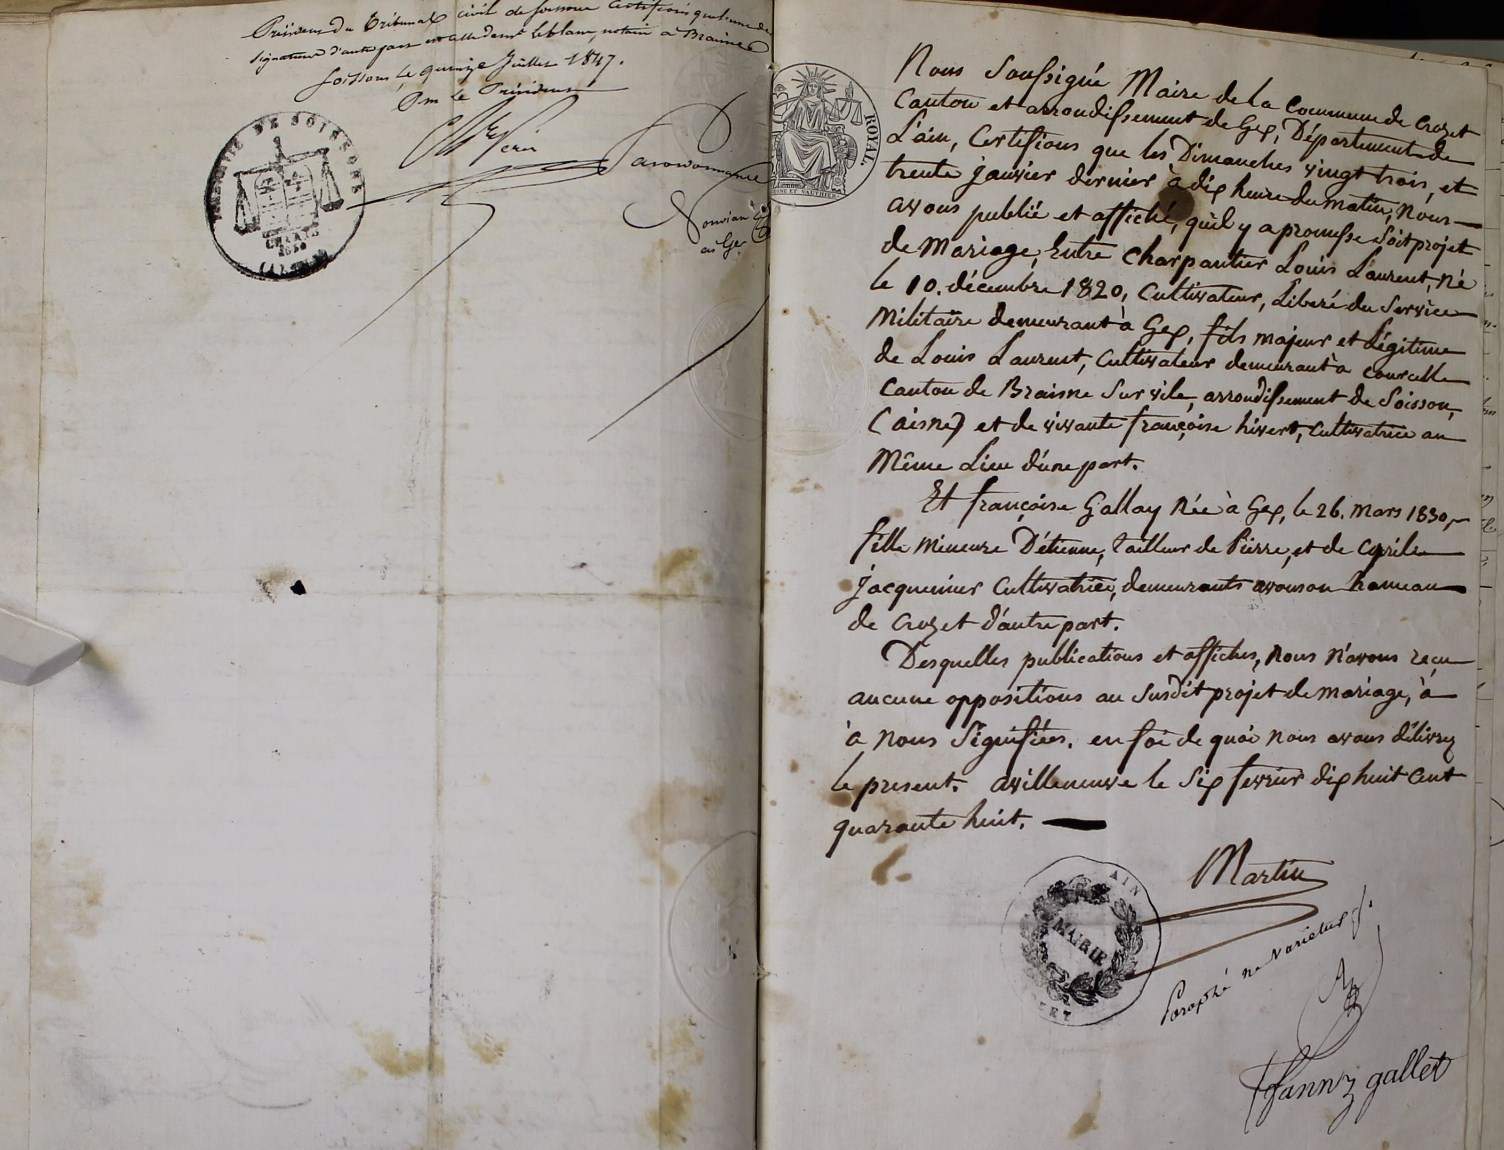 Président du Tribunal civil de Soissons Certifions que
signature d'autre part est celle de Mr Leblanc, notaire à Braine
Soissons, le quinze Juillet 1847.
Pr le Président
Par ordonnance
Nouvion
au Gr
ROYAL.
Nous Soussigné Maire de la Commune de Crozet
Canton et arrondissement de Gex, Département de
L'ain, Certifions que les Dimanches vingt trois, et
trente janvier dernier à dix heure du matin, Nous
avous publié et affiché, qu'il y a promesse Soit projet
de Mariage, Entre Charpantier Louis Laurent, Né
le 10. décembre 1820, Cultivateur, Liberé du Service
Militaire demeurant à Gex, fils majeur et Légitime
de Louis Laurent, Cultivateur demeurant à courcelle
Canton de Braisne Sur vile, arrondissement de Soisson,
(aisne) et de vivante françoise hivert, Cultivatrice au
Même Lieu d'une part.
Et françoise Gallay Née à Gex, le 26. Mars 1830,
fille Mineure D'étienne, tailleur de Pierre, et de Cyprile
Jacquinier Cultivatrice, demeurants avouson hameau
de Crozet d'autre part.
Desquelles publications et affiches, Nous N'avons reçu
aucune oppositions au Susdit projet de mariage, à
à Nous Signifiées. en foi de quoi Nous avous délivrez
le present. avilleneuve le Six fevrier dix huit Cent
quarante huit.
Martin
AIN
MAIRIE
Paraphé ne Varietur
fanny gallet